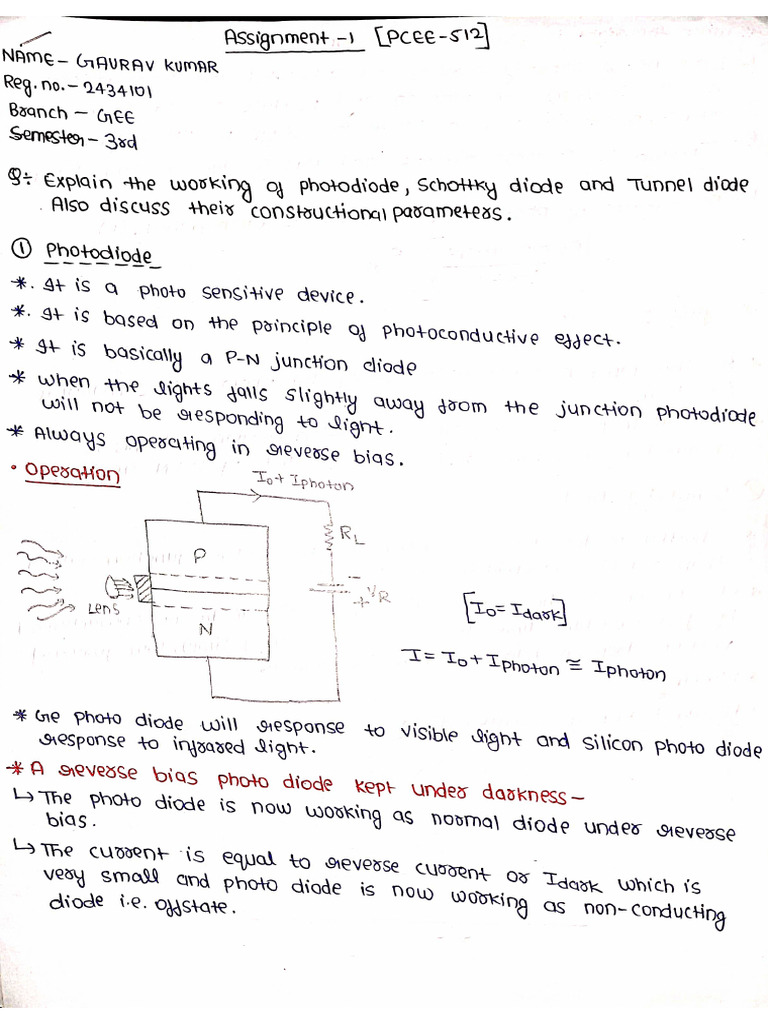 Assignment -1 [PCEE-512]
NAME - GAURAV KUMAR
Reg. no. - 2434101
Branch - GEE
Semester - 3rd
Q:- Explain the working of photodiode, Schottky diode and Tunnel diode
. Also discuss their constructional parameters.
① Photodiode
*. It is a photo sensitive device.
*. It is based on the principle of photoconductive effect.
* It is basically a P-N junction diode
* when the lights falls slightly away from the junction photodiode
will not be responding to light.
* Always operating in reverse bias.
• Operation
I0 + Iphoton
RL
P
VR
- +
Lens
N
[I0 = Idark]
I = I0 + Iphoton ≅ Iphoton
* Ge photo diode will response to visible light and silicon photo diode
response to infrared light.
* A reverse bias photo diode kept under darkness -
↳ The photo diode is now working as normal diode under reverse
bias.
↳ The current is equal to reverse current or Idark which is
very small and photo diode is now working as non-conducting
diode i.e. offstate.